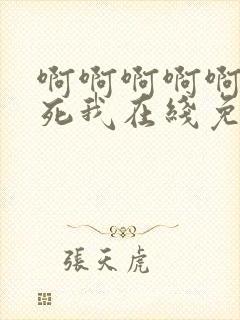 啊啊啊啊啊
死我在綫免
張天虎